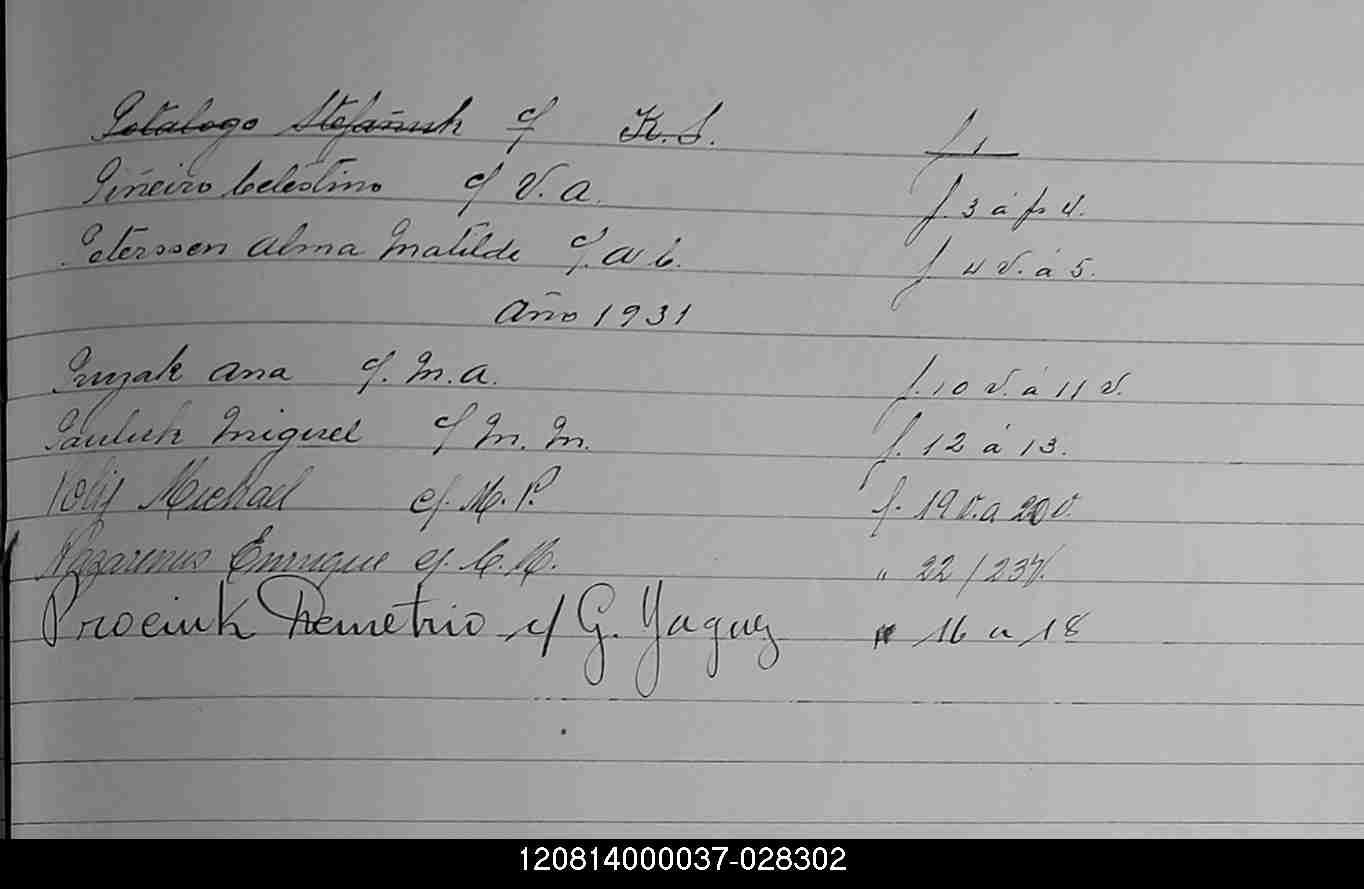 Potalogo Stefaniuk c/ K. S. f 1
Piñeiro Celestino c/ V. A. f. 3 á fs 4.
Peterssen Alma Matilde c/. A C. f 4 v. á 5.
Año 1931
Pruzak Ana c/. M. A. f. 10 v. á 11 v.
Pauluk Miguel c/ M. M. f. 12 á 13.
Michael c/. M. P. f. 19 v. a 20 v.
Nazarenus Enrique c/. C. M. " 22/23v.
Prociuk Demetrio c/ G. Yaguez 16 a 18
120814000037-028302